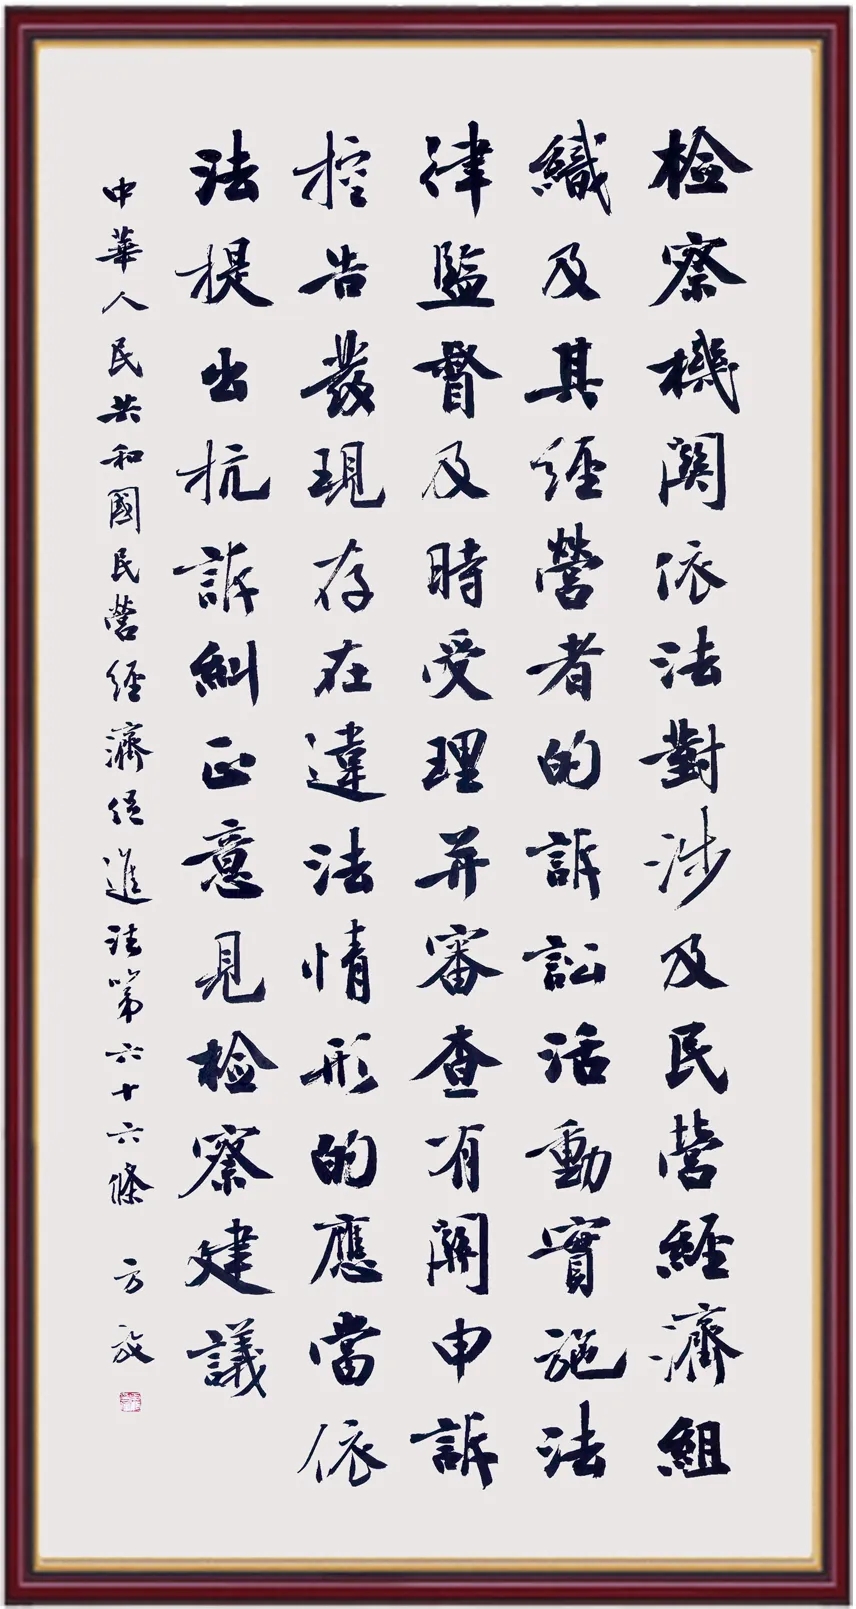 检察機関依法對涉及民營經濟組
織及其經營者的訴訟活動實施法
律監督及時受理并審查有関申訴
控告發現存在違法情形的應當依
法提出抗訴糾正意見检察建議
中華人民共和國民營經濟促進法第六十六條 方放